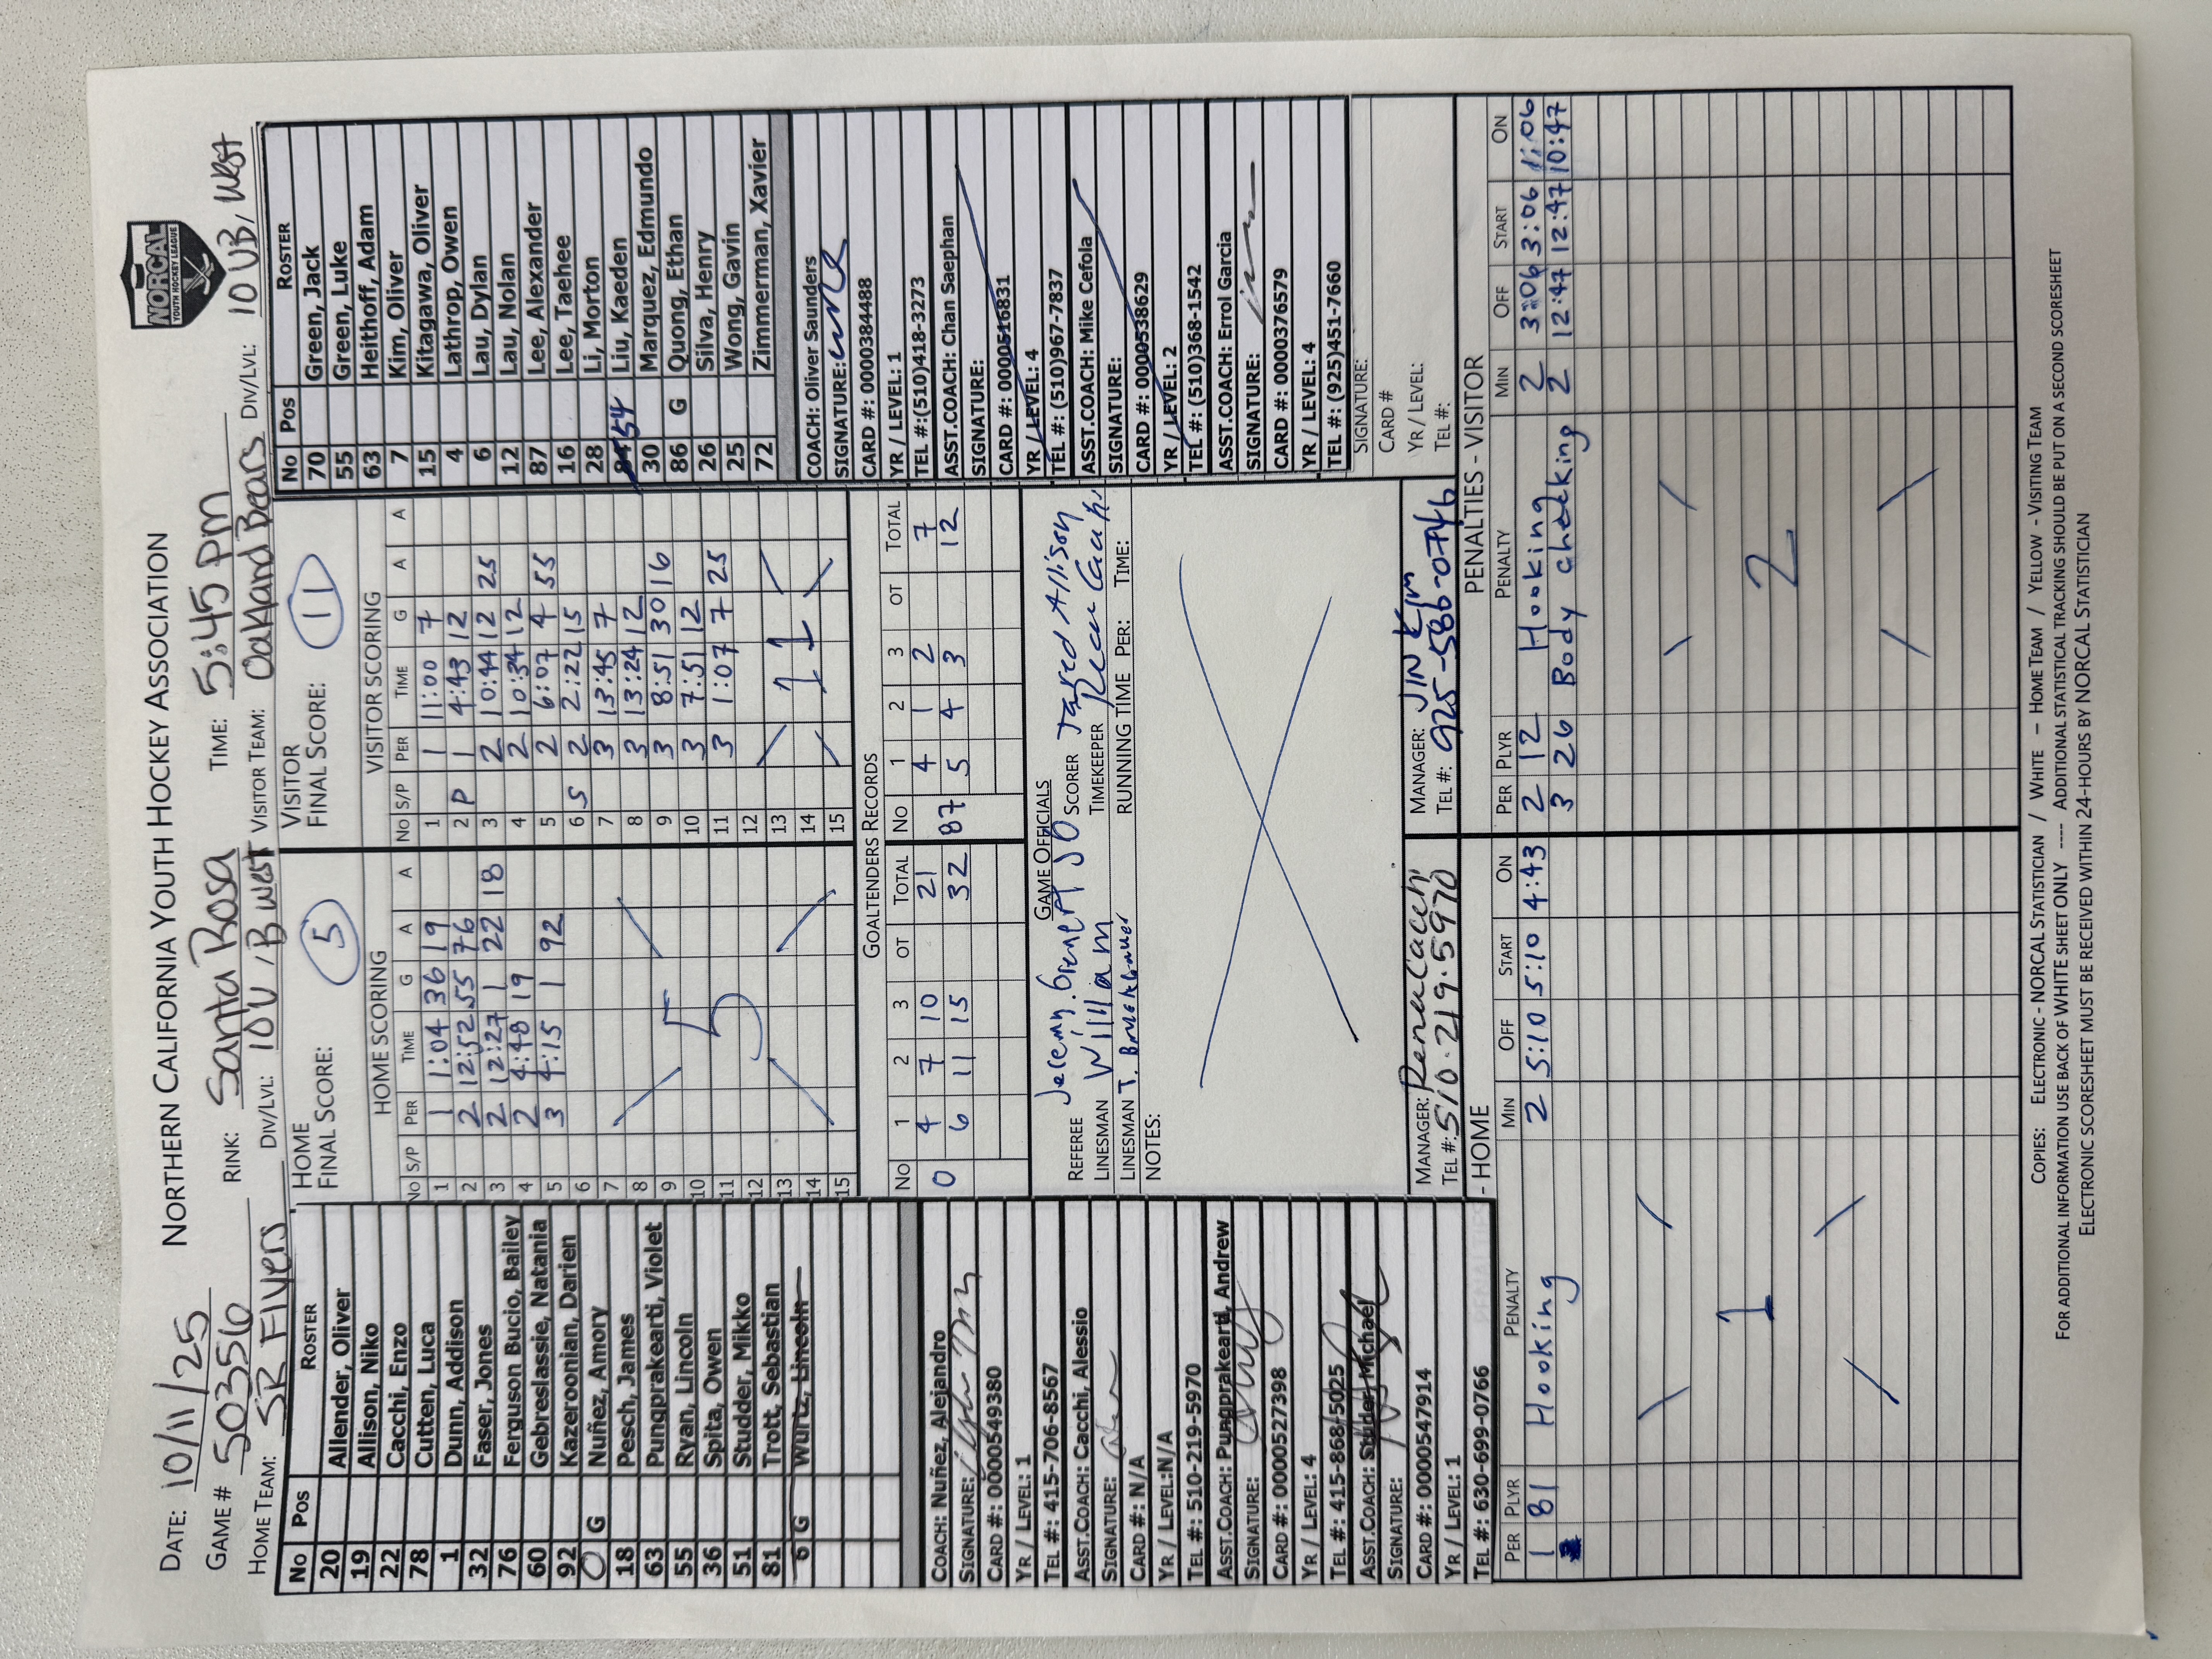 NORTHERN CALIFORNIA YOUTH HOCKEY ASSOCIATION
NORCAL
YOUTH HOCKEY LEAGUE
DATE: 10/11/25
GAME # 503556
RINK: Santa Rosa
TIME: 5:45 pm
HOME TEAM: SR Flyers
DIV/LVL: 10U / B West
VISITOR TEAM: Oakland Bears
DIV/LVL: 10 UB / West
No Pos ROSTER
20 Allender, Oliver
19 Allison, Niko
22 Cacchi, Enzo
78 Cutten, Luca
1 Dunn, Addison
32 Faser, Jones
76 Ferguson Bucio, Bailey
60 Gebreslassie, Natania
92 Kazeroonian, Darien
0 G Nuñez, Amory
18 Pesch, James
63 Pungprakearti, Violet
55 Ryan, Lincoln
36 Spita, Owen
51 Studder, Mikko
81 Trott, Sebastian
6 G Wurtz, Lincoln
COACH: Nuñez, Alejandro
SIGNATURE:
CARD #: 0000549380
YR / LEVEL: 1
TEL #: 415-706-8567
ASST.COACH: Cacchi, Alessio
SIGNATURE:
CARD #: N/A
YR / LEVEL:N/A
TEL #: 510-219-5970
ASST.COACH: Pungprakearti, Andrew
SIGNATURE:
CARD #: 0000527398
YR / LEVEL: 4
TEL #: 415-868-5025
ASST.COACH: Studer, Michael
SIGNATURE:
CARD #: 0000547914
YR / LEVEL: 1
TEL #: 630-699-0766
HOME
FINAL SCORE: 5
HOME SCORING
No S/P PER TIME G A A
1 1 1:04 36 19
2 2 12:52 55 76
3 2 12:27 1 22 18
4 2 4:48 19
5 3 4:15 1 92
6
7
8
9
10
11
12
13
14
15
5
VISITOR
FINAL SCORE: 11
VISITOR SCORING
No S/P PER TIME G A A
1 1 11:00 7
2 P 1 4:43 12
3 2 10:44 12 25
4 2 10:34 12
5 2 6:07 4 55
6 S 2 2:22 15
7 3 13:45 7
8 3 13:24 12
9 3 8:51 30 16
10 3 7:51 12
11 3 1:07 7 25
12
13
14
15
11
GOALTENDERS RECORDS
No 1 2 3 OT TOTAL
0 4 7 10 21
6 11 15 32
No 1 2 3 OT TOTAL
87 4 1 2 7
5 4 3 12
GAME OFFICIALS
REFEREE Jeremy
LINESMAN William
LINESMAN T.
SCORER Jared Allison
TIMEKEEPER
RUNNING TIME PER: TIME:
NOTES:
MANAGER: Rena Cacchi
TEL #: 510.219.5970
MANAGER: JIN Kim
TEL #: 925-586-0746
No Pos ROSTER
70 Green, Jack
55 Green, Luke
63 Heithoff, Adam
7 Kim, Oliver
15 Kitagawa, Oliver
4 Lathrop, Owen
6 Lau, Dylan
12 Lau, Nolan
87 Lee, Alexander
16 Lee, Taehee
28 Li, Morton
54 Liu, Kaeden
30 Marquez, Edmundo
86 G Quong, Ethan
26 Silva, Henry
25 Wong, Gavin
72 Zimmerman, Xavier
COACH: Oliver Saunders
SIGNATURE:
CARD #: 0000384488
YR / LEVEL: 1
TEL #:(510)418-3273
ASST.COACH: Chan Saephan
SIGNATURE:
CARD #: 0000516831
YR / LEVEL: 4
TEL #: (510)967-7837
ASST.COACH: Mike Cefola
SIGNATURE:
CARD #: 0000538629
YR / LEVEL: 2
TEL #: (510)368-1542
ASST.COACH: Errol Garcia
SIGNATURE:
CARD #: 0000376579
YR / LEVEL: 4
TEL #: (925)451-7660
SIGNATURE:
CARD #
YR / LEVEL:
TEL #:
- HOME
PER PLYR PENALTY MIN OFF START ON
1 81 Hooking 2 5:10 5:10 4:43
1
PENALTIES - VISITOR
PER PLYR PENALTY MIN OFF START ON
2 12 Hooking 2 3:06 3:06 1:06
3 26 Body checking 2 12:47 12:47 10:47
2
COPIES: ELECTRONIC - NORCAL STATISTICIAN / WHITE - HOME TEAM / YELLOW - VISITING TEAM
FOR ADDITIONAL INFORMATION USE BACK OF WHITE SHEET ONLY ---- ADDITIONAL STATISTICAL TRACKING SHOULD BE PUT ON A SECOND SCORESHEET
ELECTRONIC SCORESHEET MUST BE RECEIVED WITHIN 24-HOURS BY NORCAL STATISTICIAN